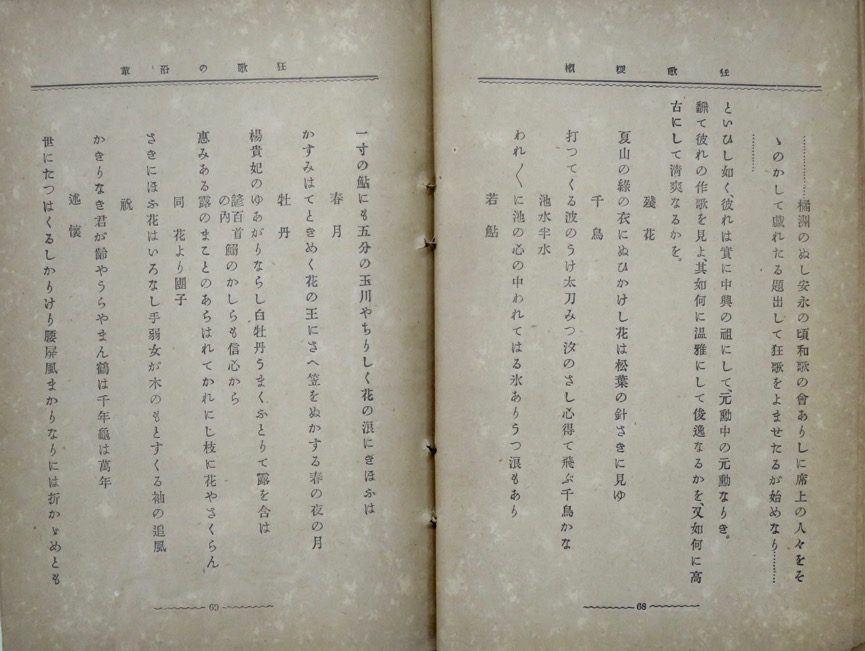 狂歌梗概
…………橘洲のぬし安永の頃和歌の會ありしに席上の人々をそ
ゝのかして戯れたる題出して狂歌をよませたるが始めなり…………
…………
といひし如く、彼れは實に中興の祖にして、元勳中の元勳なりき。
飜て彼れの作歌を見よ、其如何に温雅にして俊逸なるかを、又如何に高
古にして清爽なるかを。
殘花
夏山の綠の衣にぬひかけし花は松葉の針さきに見ゆ
千鳥
打つてくる波のうけ太刀みつ汐のさし心得て飛ぶ千鳥かな
池水半氷
われ〱に池の心の中われてはる氷ありうつ浪もあり
若鮎
68
狂歌の沿革
一寸の鮎にも五分の玉川やちりしく花の浪にきほふは
春月
かすみはてときめく花の王にさへ笠をぬかする春の夜の月
牡丹
楊貴妃のゆあがりならし白牡丹うまくふとりて露を含は
諺百首の内 鰯のかしらも信心から
惠みある露のまことのあらはれてかれにし枝に花やさくらん
同 花より團子
さきにほふ花はいろなし手弱女が木のもとすくる袖の追風
祝
かきりなき君が齡やうらやまん鶴は千年龜は萬年
述懷
世にたつはくるしかりけり腰屏風まかりなりには折かゞめとも
69